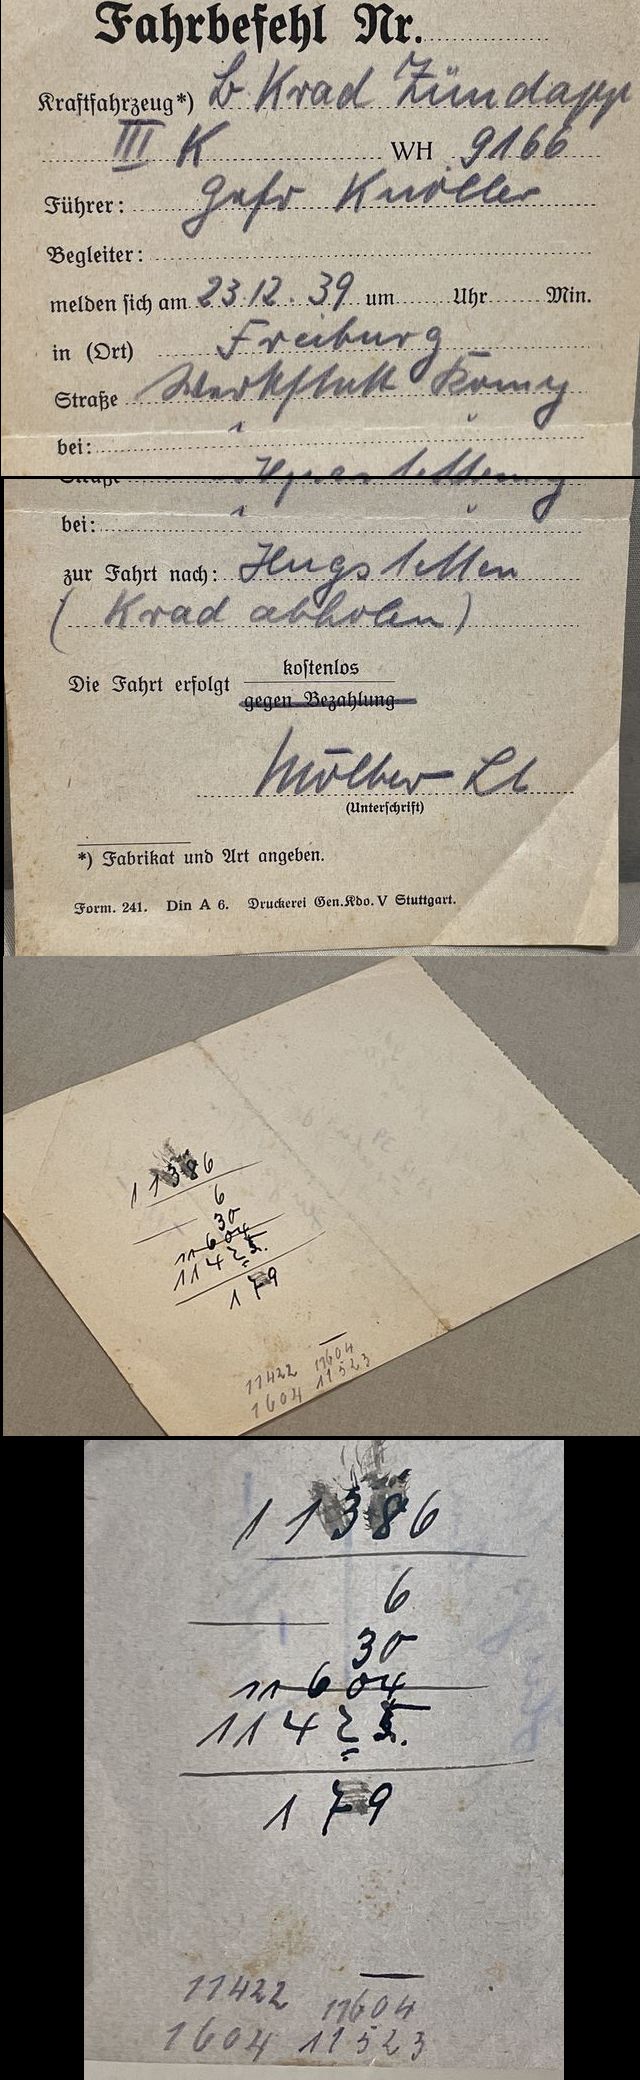 Fahrbefehl Nr.
Kraftfahrzeug*) L. Krad Zündapp
III K WH 9166
Führer: Gefr Knöller
Begleiter:
melden sich am 23.12.39 um Uhr Min.
in (Ort) Freiburg
Straße Werkstatt
bei:
Straße
bei:
zur Fahrt nach: Hugstetten
( Krad abholen )
Die Fahrt erfolgt kostenlos
gegen Bezahlung
Lt
(Unterschrift)
*) Fabrikat und Art angeben.
Form. 241. Din A 6. Druckerei Gen.Kdo. V Stuttgart.
11386
6
30
11604
11425.
179
11422 11604
1604 11523
11386
6
30
11604
11425.
179
11422 11604
1604 11523